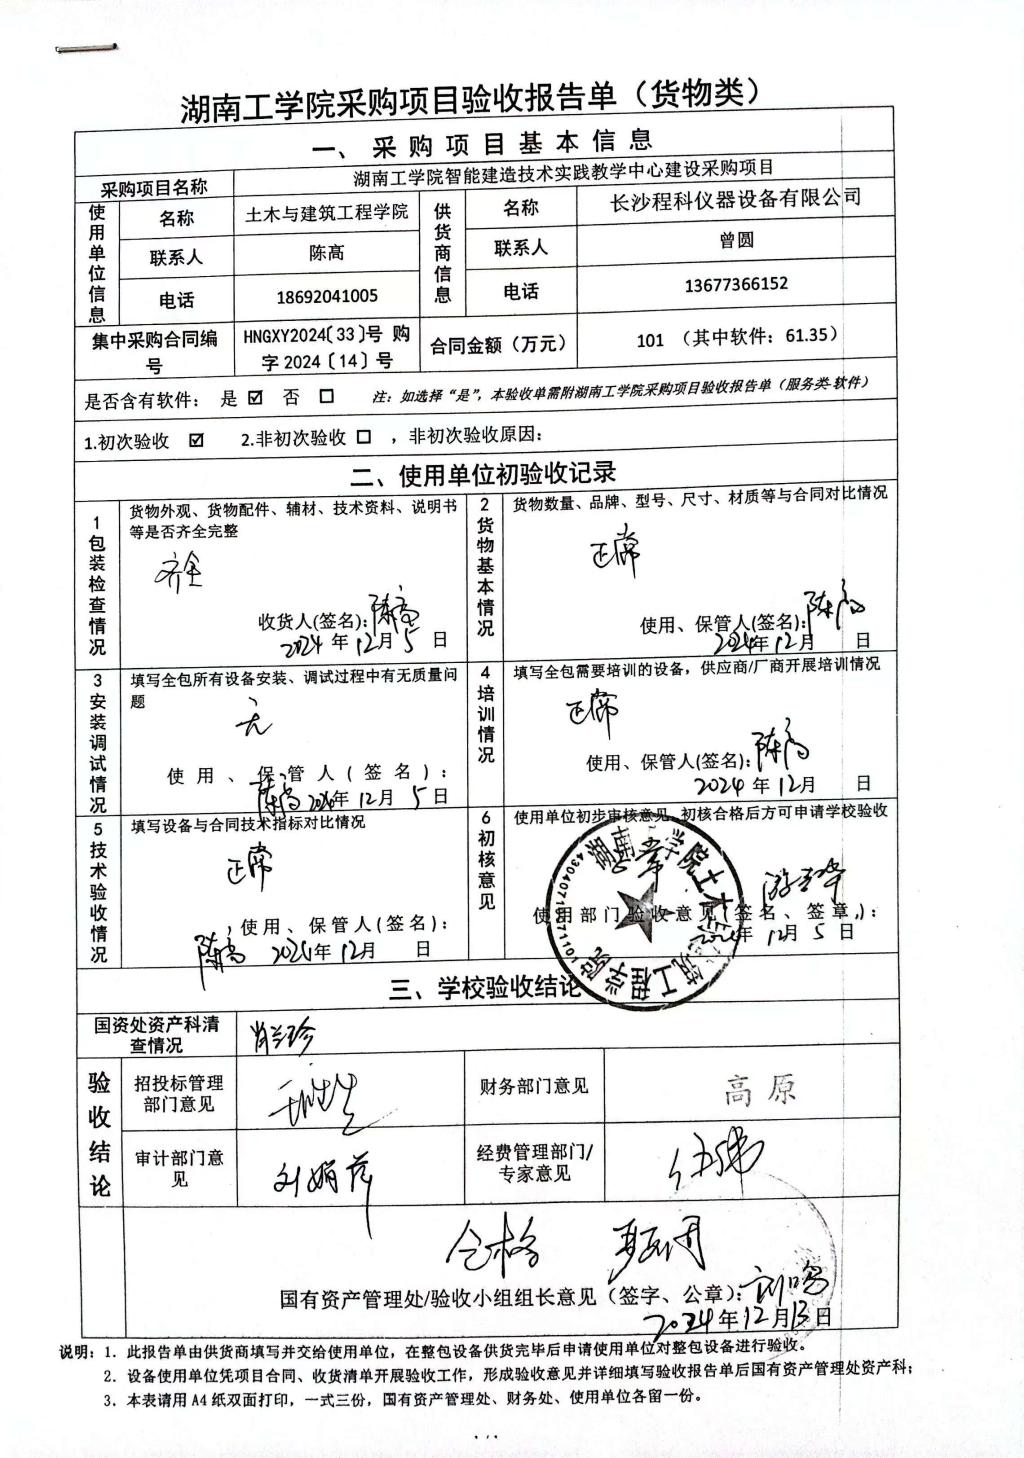 湖南工学院采购项目验收报告单（货物类）
一、采购项目基本信息
采购项目名称
湖南工学院智能建造技术实践教学中心建设采购项目
使用单位信息
名称
土木与建筑工程学院
供货商信息
名称
长沙程科仪器设备有限公司
联系人
陈高
联系人
曾圆
电话
18692041005
电话
13677366152
集中采购合同编号
HNGXY2024〔33〕号 购
字 2024〔14〕号
合同金额（万元）
101 （其中软件：61.35）
是否含有软件： 是 ☑ 否 □ 注：如选择“是”，本验收单需附湖南工学院采购项目验收报告单（服务类-软件）
1.初次验收 ☑ 2.非初次验收 □ ，非初次验收原因：
二、使用单位初验收记录
1包装检查情况
货物外观、货物配件、辅材、技术资料、说明书
等是否齐全完整
齐全
收货人(签名): 陈高
2024 年 12 月 5 日
2货物基本情况
货物数量、品牌、型号、尺寸、材质等与合同对比情况
正常
使用、保管人(签名): 陈高
2024年 12月 日
3安装调试情况
填写全包所有设备安装、调试过程中有无质量问
题
无
使用、保管人(签名):
陈高 2024年 12月 5日
4培训情况
填写全包需要培训的设备，供应商/厂商开展培训情况
正常
使用、保管人(签名): 陈高
2024 年 12月 日
5技术验收情况
填写设备与合同技术指标对比情况
正常
使用、保管人(签名):
陈高 2024年 12月 日
6初核意见
使用单位初步审核意见，初核合格后方可申请学校验收
使用部门验收意见(签名、签章):
年 12月 5 日
湖南工学院土木与建筑工程学院
4304071047101
三、学校验收结论
国资处资产科清
查情况
验收结论
招投标管理
部门意见
财务部门意见
高原
审计部门意
见
刘娟萍
经费管理部门/
专家意见
合格
国有资产管理处/验收小组组长意见（签字、公章）:
2024年12月13日
说明：1. 此报告单由供货商填写并交给使用单位，在整包设备供货完毕后申请使用单位对整包设备进行验收。
2. 设备使用单位凭项目合同、收货清单开展验收工作，形成验收意见并详细填写验收报告单后国有资产管理处资产科；
3. 本表请用 A4 纸双面打印，一式三份，国有资产管理处、财务处、使用单位各留一份。